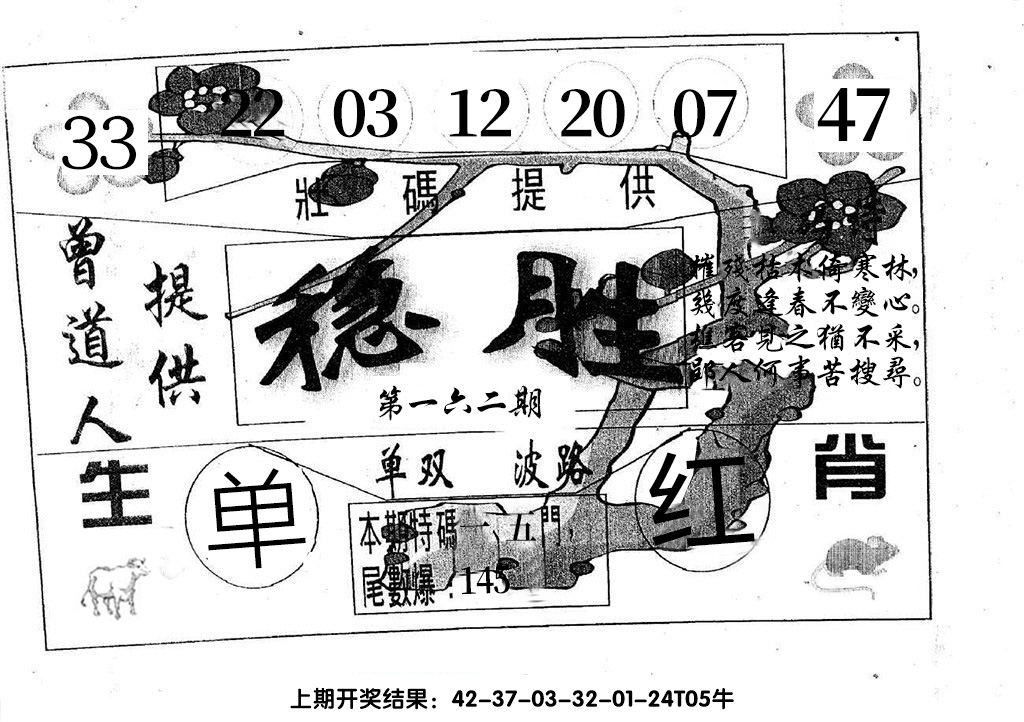 33 22 03 12 20 07 47
壯碼提供
曾道人
提供
稳胜
第一六二期
特
摧殘枯木倚寒林，
幾度逢春不變心。
樵客見之猶不采，
郢人何事苦搜尋。
单双 波路
生肖
单
红
本期特碼一、五門，
尾數爆：145
上期开奖结果：42-37-03-32-01-24T05牛